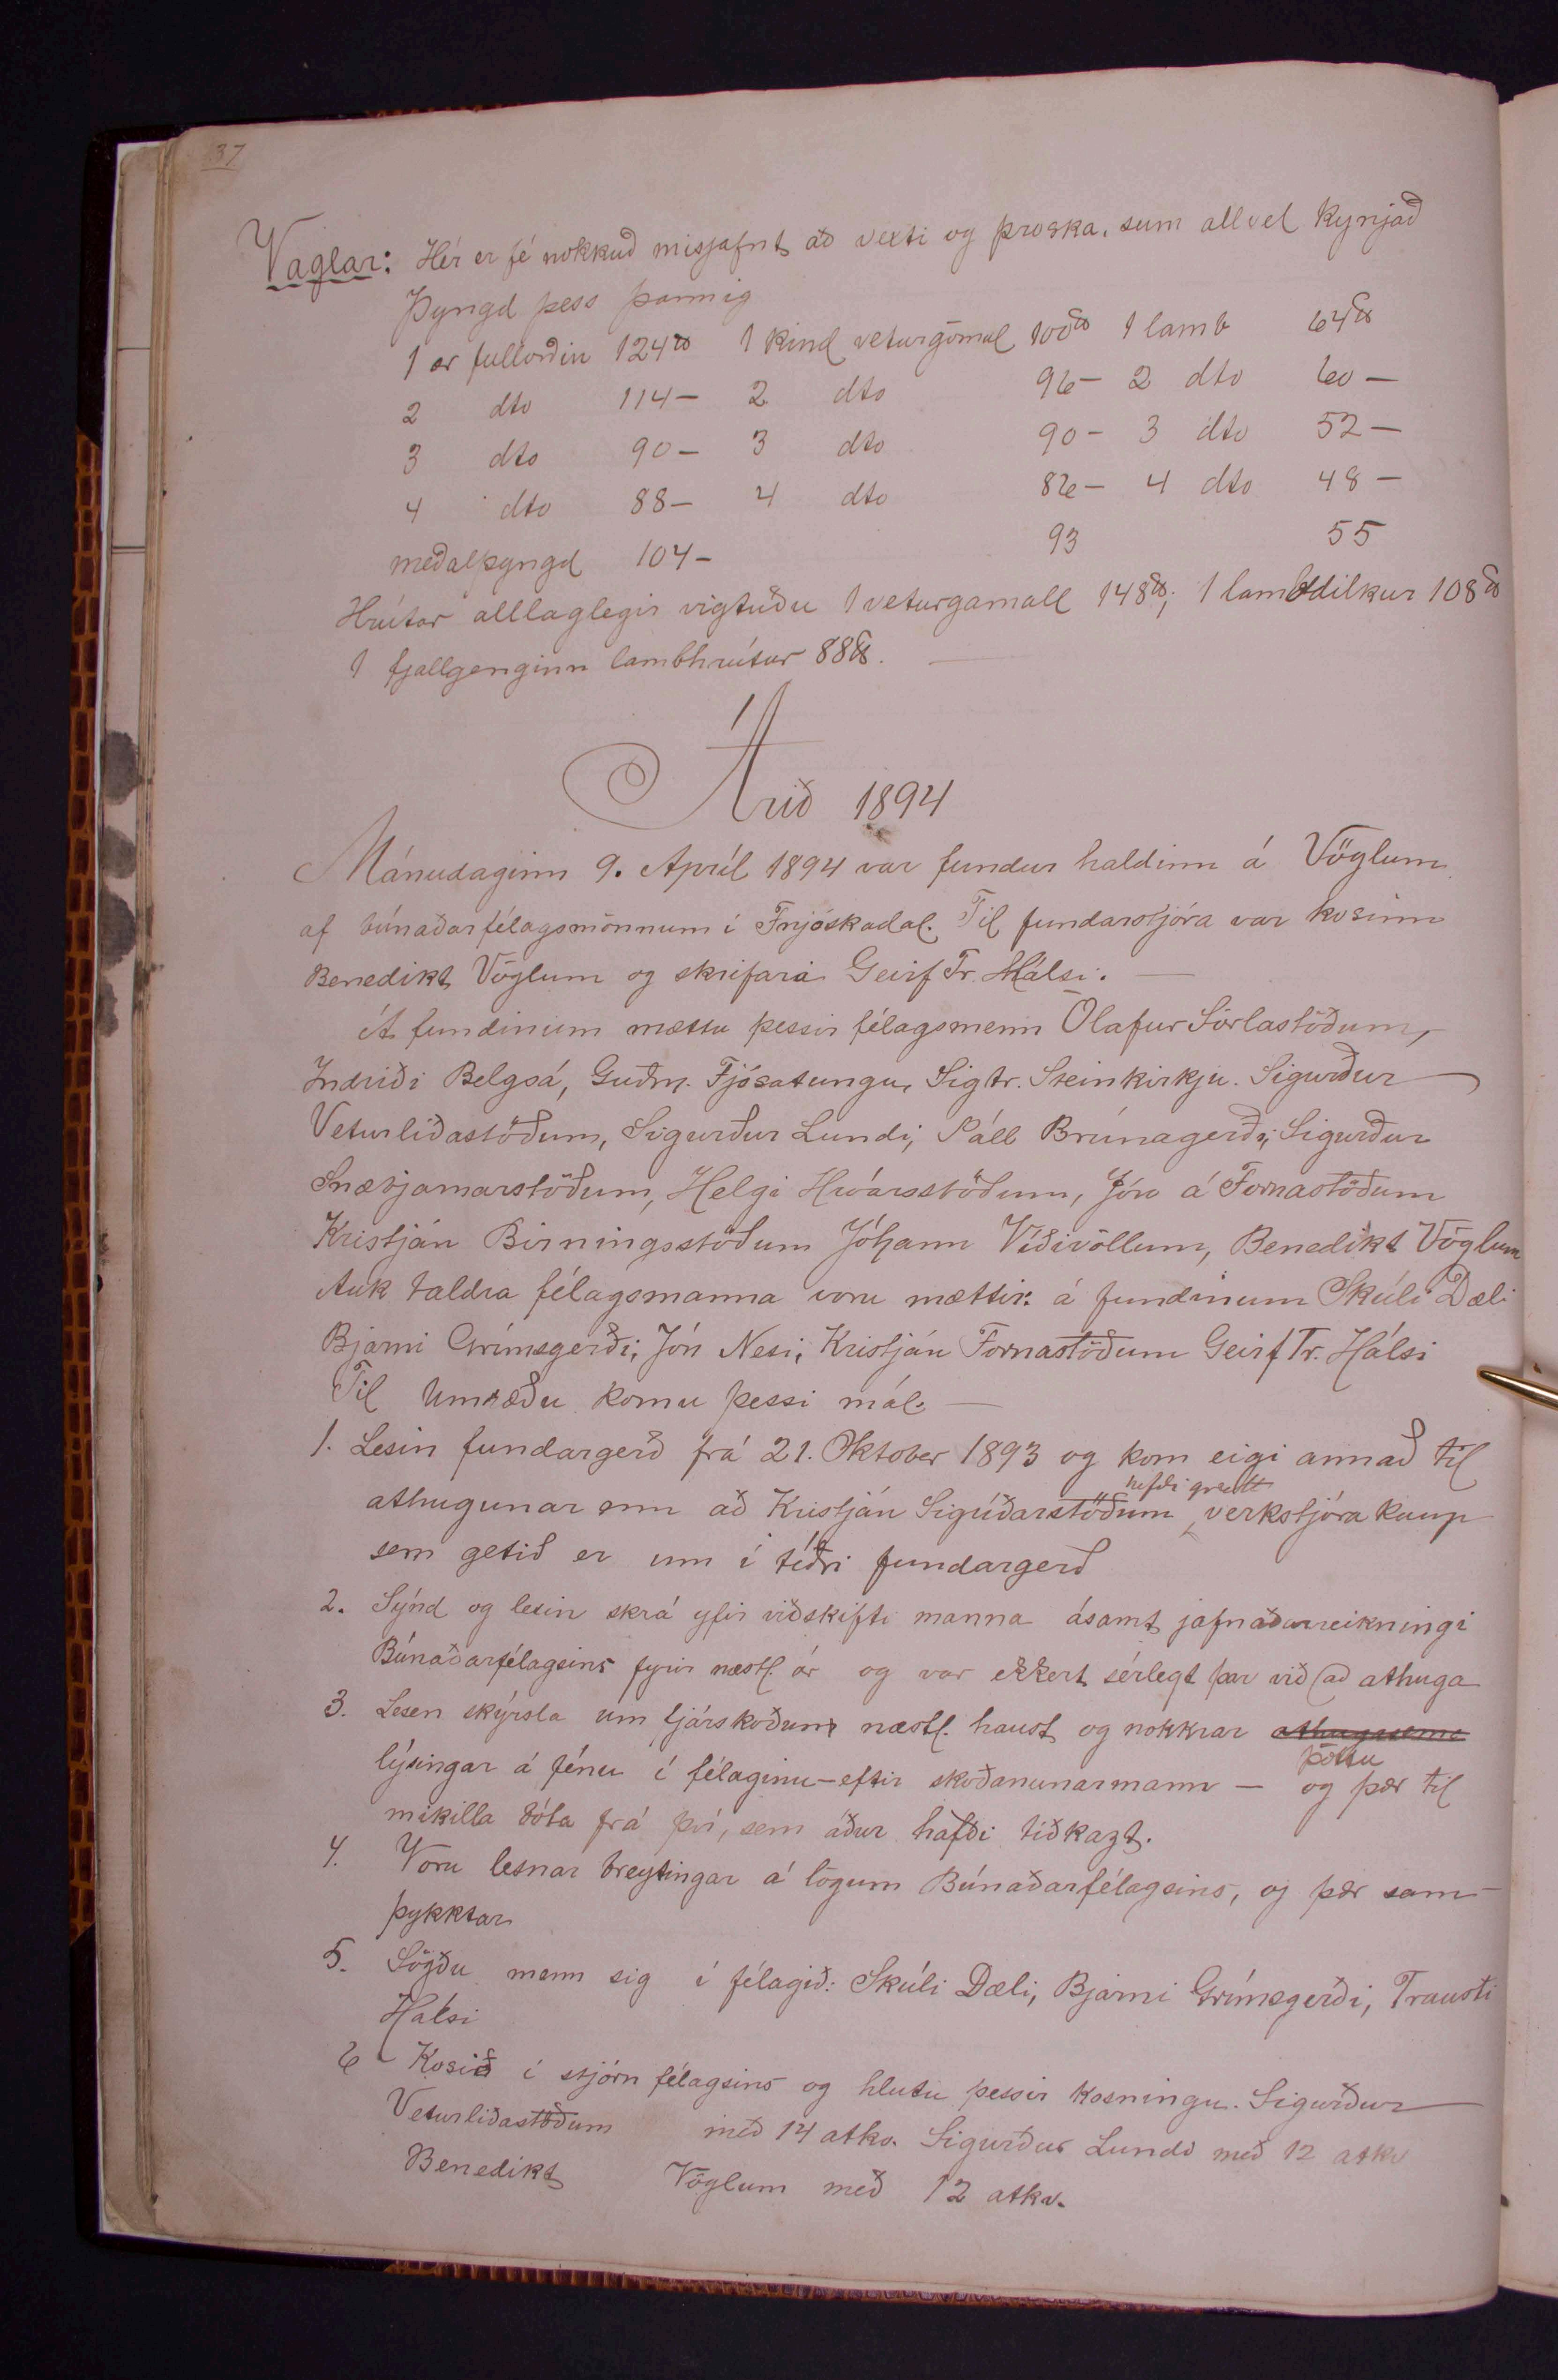 37
Vaglar: Hér er fé nokkuð misjafnt að vexti og þroska, sum allvel kynjað
Þyngd þess þannig
1 ær fullorðin 124 ℔ 1 kind veturgömul 100 ℔ 1 lamb 64 ℔
2 dto 114- 2 dto 96- 2 dto 60-
3 dto 90- 3 dto 90- 3 dto 52-
4 dto 88- 4 dto 86- 4 dto 48-
meðalþyngd 104- 93 55
Hrútar alllaglegir vigtuðu 1 veturgamall 148 ℔; 1 lambdilkur 108 ℔
1 fjallgenginn lambhrútur 88 ℔.
Árið 1894
Mánudaginn 9. Apríl 1894 var fundur haldinn á Vöglum
af búnaðarfélagsmönnum í Fnjóskadal. Til fundarstjóra var kosinn
Benedikt Vöglum og skrifara Geirf Tr. Hálsi. —
Á fundinum mættu þessir félagsmenn Ólafur Sörlastöðum,
Indriði Belgsá, Guðm. Fjósatungu, Sigtr. Steinkirkju. Sigurður
Veturliðastöðum, Sigurður Lundi, Páll Brúnagerði, Sigurður
Snæbjarnarstöðum, Helgi Hróarsstöðum, Jón á Fornastöðum
Kristján Birningsstöðum Jóhann Víðivöllum, Benedikt Vöglum
Auk taldra félagsmanna voru mættir á fundinum Skúli Dæli
Bjarni Grímsgerði, Jón Nesi, Kristján Fornastöðum Geirf Tr. Hálsi
Til umræðu komu þessi mál. —
1. Lesin fundargerð frá 21. Oktober 1893 og kom eigi annað til
hefði greitt
athugunar enn að Kristján Sigríðarstöðum verkstjóra kaup
sem getið er um í téðri fundargerð
2. Sýnd og lesin skrá yfir viðskifti manna ásamt jafnaðarreikningi
Búnaðarfélagsins fyrir næstl. ár og var ekkert sérlegt þar við að athuga
3. Lesen skýrsla um fjárskoðun næstl. haust og nokkrar athugasemd
þóttu
lýsingar á fénu í félaginu - eftir skoðanunarmann — og þær til
mikilla bóta frá því, sem áður hafði tíðkazt.
4. Voru lesnar breytingar á lögum Búnaðarfélagsins, og þær sam-
þykktar
5. Sögðu menn sig í félagið: Skúli Dæli, Bjarni Grímsgerði, Trausti
Hálsi
6 Kosið í stjórn félagsins og hlutu þessir kosningu. Sigurður
Veturliðastöðum með 14 atkv. Sigurður Lundi með 12 atkv
Benedikt Vöglum með 12 atkv.